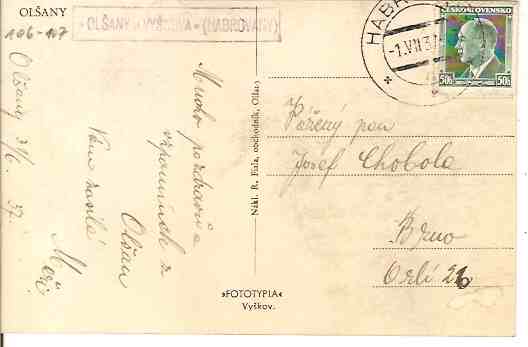 OLŠANY
106-107
OLŠANY u VYŠKOVA (HABROVANY)
Olšany 30/6. 37.
Mnoho pozdravů a
vzpomínek z
Olšan
Vám zasílá
Nákl. R. Fiala, obchodník, Olšany
»FOTOTYPIA«
Vyškov.
HABRO
-1.VII 37
ČESKOSLOVENSKO
50h 50h
Vážený pan
Josef Chobola
Brno
Orlí 26